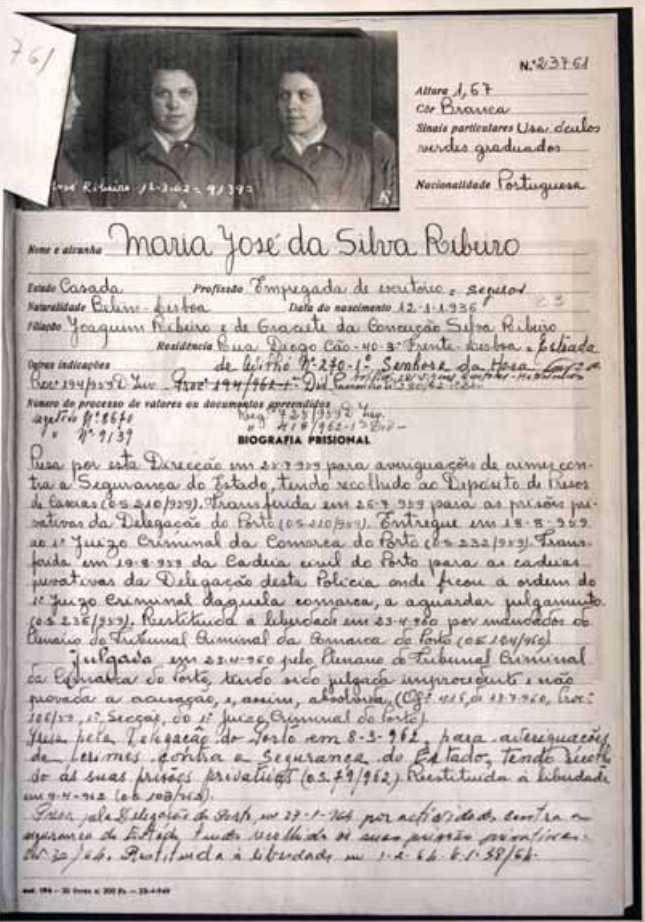 761
José Ribeiro 12-3-62 = 9139?
N.º 23761
Altura 1,67
Côr Branca
Sinais particulares Usa óculos
verdes graduados
Nacionalidade Portuguesa
Nome e alcunha Maria José da Silva Ribeiro
Estado Casada Profissão Empregada de escritório = seguros
Naturalidade Belém - Lisboa Data do nascimento 12-1-1936
23
Filiação Joaquim Ribeiro e de Graciete da Conceição Silva Ribeiro
Residência Rua Diogo Cão - 40-3º Frente - Lisboa = Estrada
Outras indicações de Nº-270-1º Senhora da Hora
Proc. 194/959 D. Inv. Proc. 194/962-1ª Div.
Número do processo de valores ou documentos apreendidos
negativo Nº 8670 Reg. 725/959 D. Inv.
" Nº 9139 " 418/962-1ª Div -
BIOGRAFIA PRISIONAL
Presa por esta Direcção em 25-7-959 para averiguações de crimes con-
tra a Segurança do Estado, tendo recolhido ao Depósito de Presos
de Caxias (O.S. 210/959). Transferida em 26-7-959 para as prisões pri-
vativas da Delegação do Porto (O.S 210/959). Entregue em 18-8-959
ao 1º Juizo Criminal da Comarca do Porto (O.S 232/959). Trans-
ferida em 19-8-959 da Cadeia civil do Porto para as cadeias
privativas da Delegação desta Polícia onde ficou à ordem do
1º Juizo Criminal daquela comarca, a aguardar julgamento.
(O.S 236/959). Restituida à liberdade em 23-4-960 por mandados do
Plenário do Tribunal Criminal da Comarca do Porto (O.S 104/960)
Julgada em 23-4-960 pelo Plenário do Tribunal Criminal
da Comarca do Porto, tendo sido julgada improcedente e não
provada a acusação, e, assim, absolvida, (Ofº 416, de 960, Proc.
106/59, 1ª Secção, do 1º Juizo Criminal do Porto).
Presa pela Delegação do Porto em 8-3-962, para averiguações
de crimes contra a Segurança do Estado, tendo recolhi-
do às suas prisões privativas (O.S. 79/962) Restituida à liberdade
em 9-4-962 (O.S 103/962).
Presa pela Delegação do Porto, em 27-1-964 por actividades contra a
segurança do Estado tendo recolhido às suas prisões privativas.
O.S. 30/64. Restituida à liberdade em 1-2-64. O.S. 38/64.
mod. 196 - 20 livros c/ 200 fls. - 22-4-949